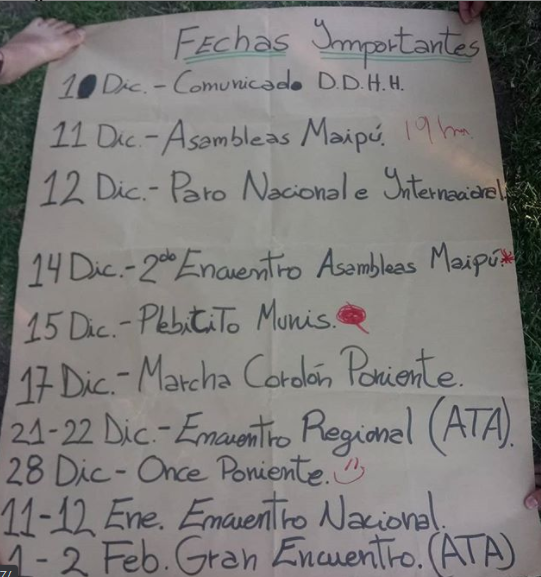 Fechas Importantes
10 Dic.- Comunicado D.D.H.H.
11 Dic.- Asambleas Maipú. 19 hrs.
12 Dic.- Paro Nacional e Internacional.
14 Dic.- 2do Encuentro Asambleas Maipú.*
15 Dic.- Plebicito Munis.
17 Dic.- Marcha Cordón Poniente.
21-22 Dic.- Encuentro Regional (ATA).
28 Dic- Once Poniente.
11-12 Ene. Encuentro Nacional.
1-2 Feb. Gran Encuentro. (ATA)